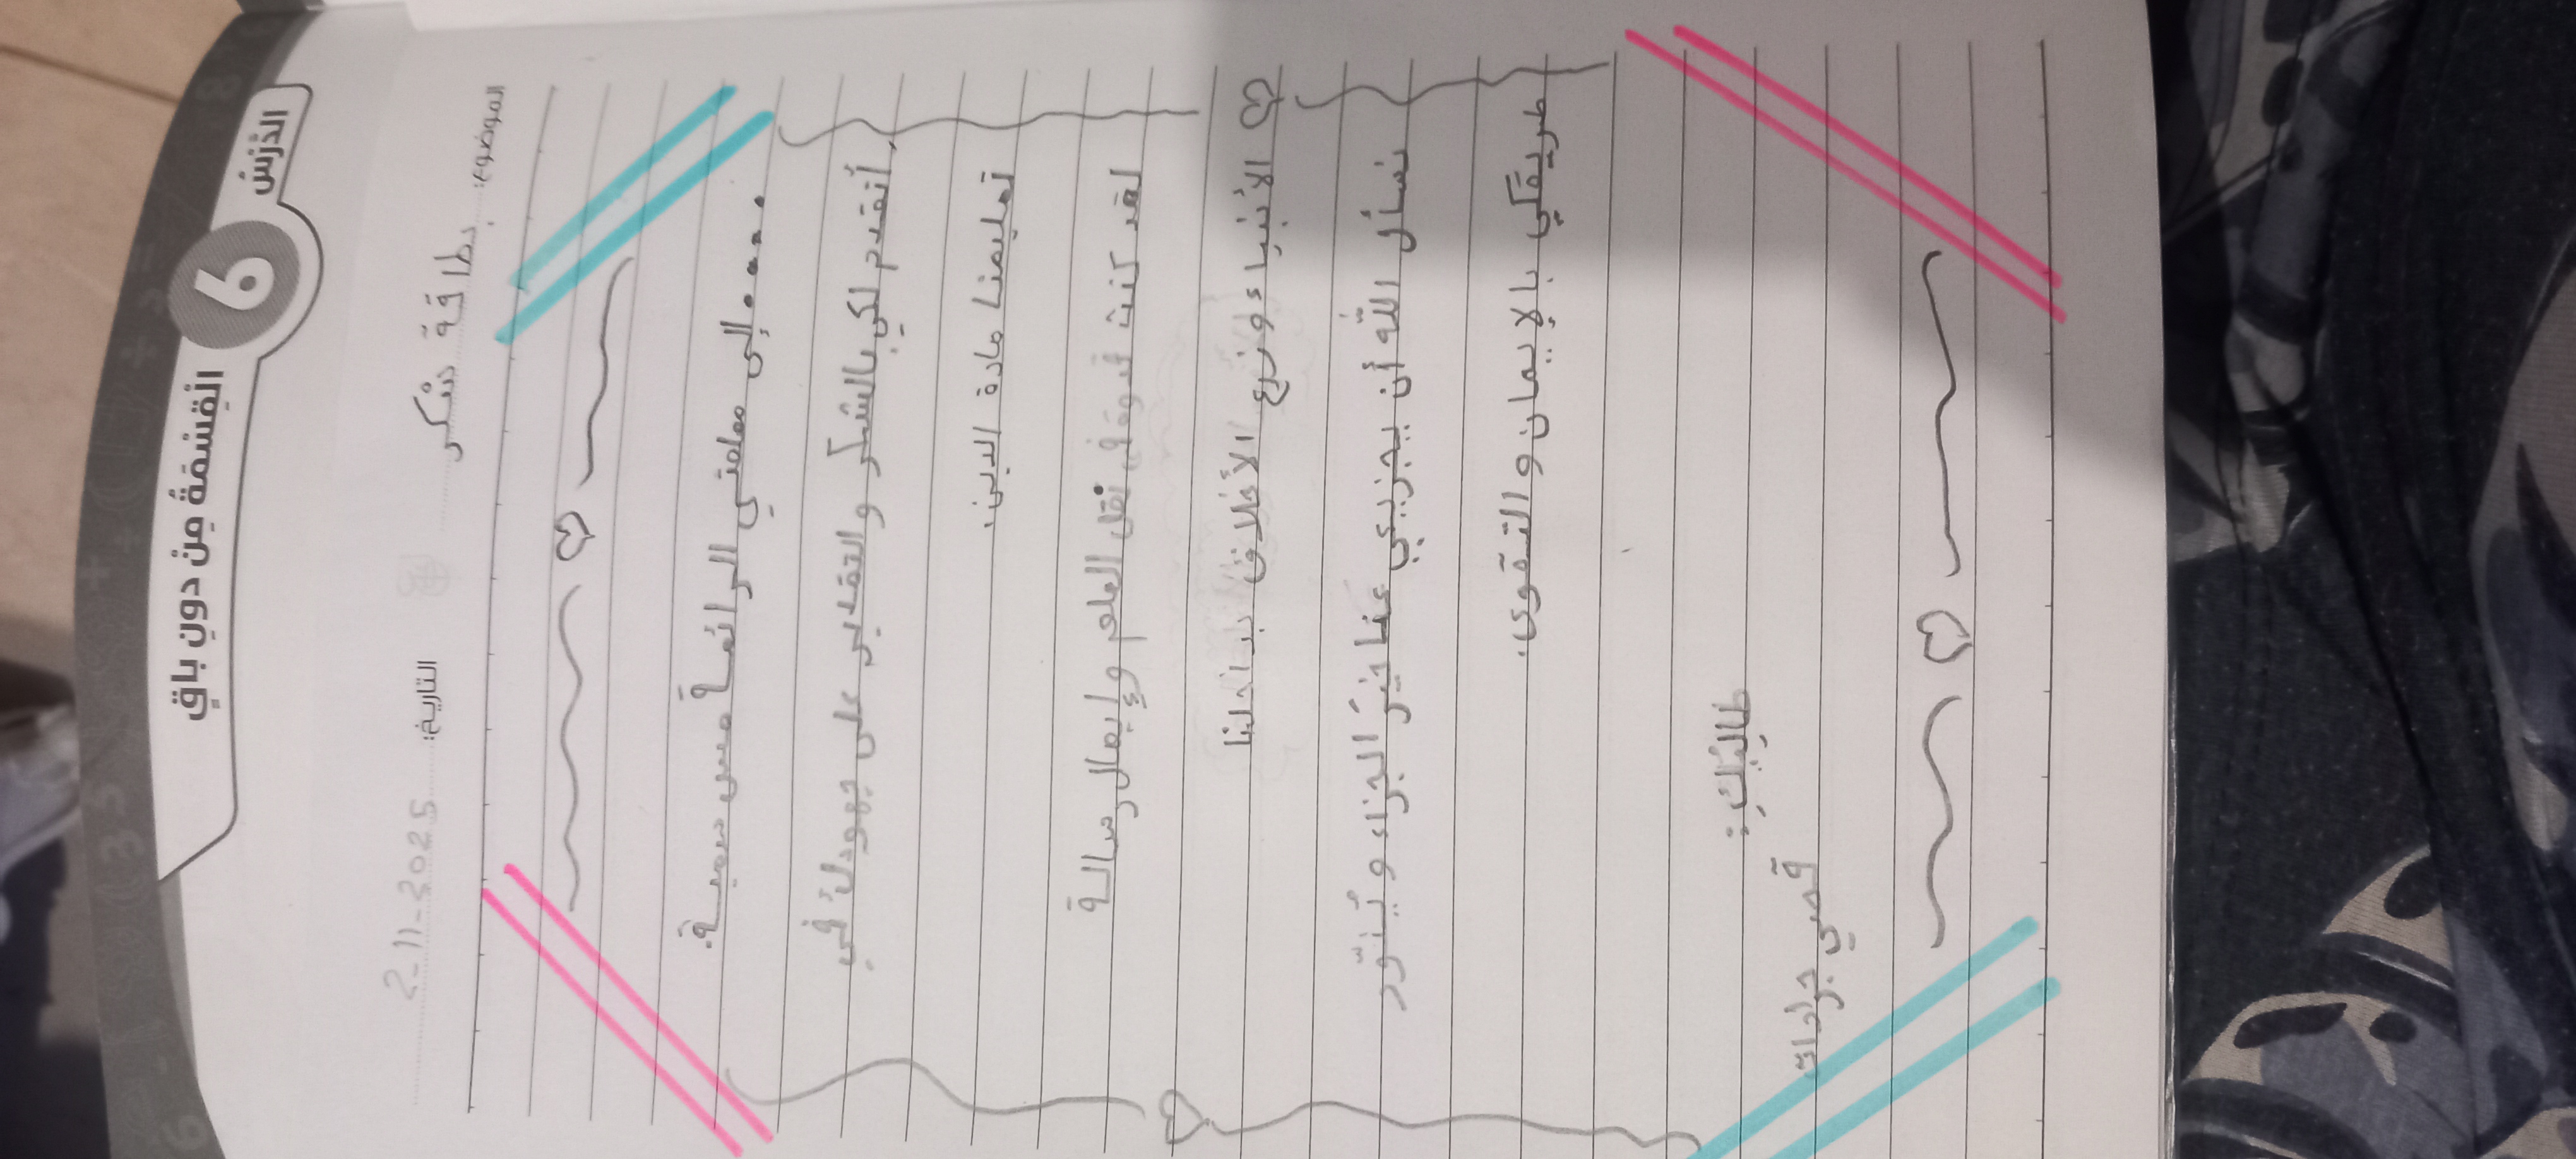 الدرس 6 القسمة من دون باقٍ
الموضوع: بطاقة شكر التاريخ: 2-11-2025
..... إلى معلمتي الرائعة مس سمية.
أتقدم لكي بالشكر والتقدير على جهودك في
تعليمنا مادة الدين.
لقد كنت قدوة في نقل العلم وإيصال رسالة
الأنبياء وزرع الأخلاق بداخلنا
نسأل الله أن يجزيكي عنا خيرَ الجزاء ويُنوّر
طريقكي بالإيمان والتقوى.
طالبُكِ:
قصي جرادات